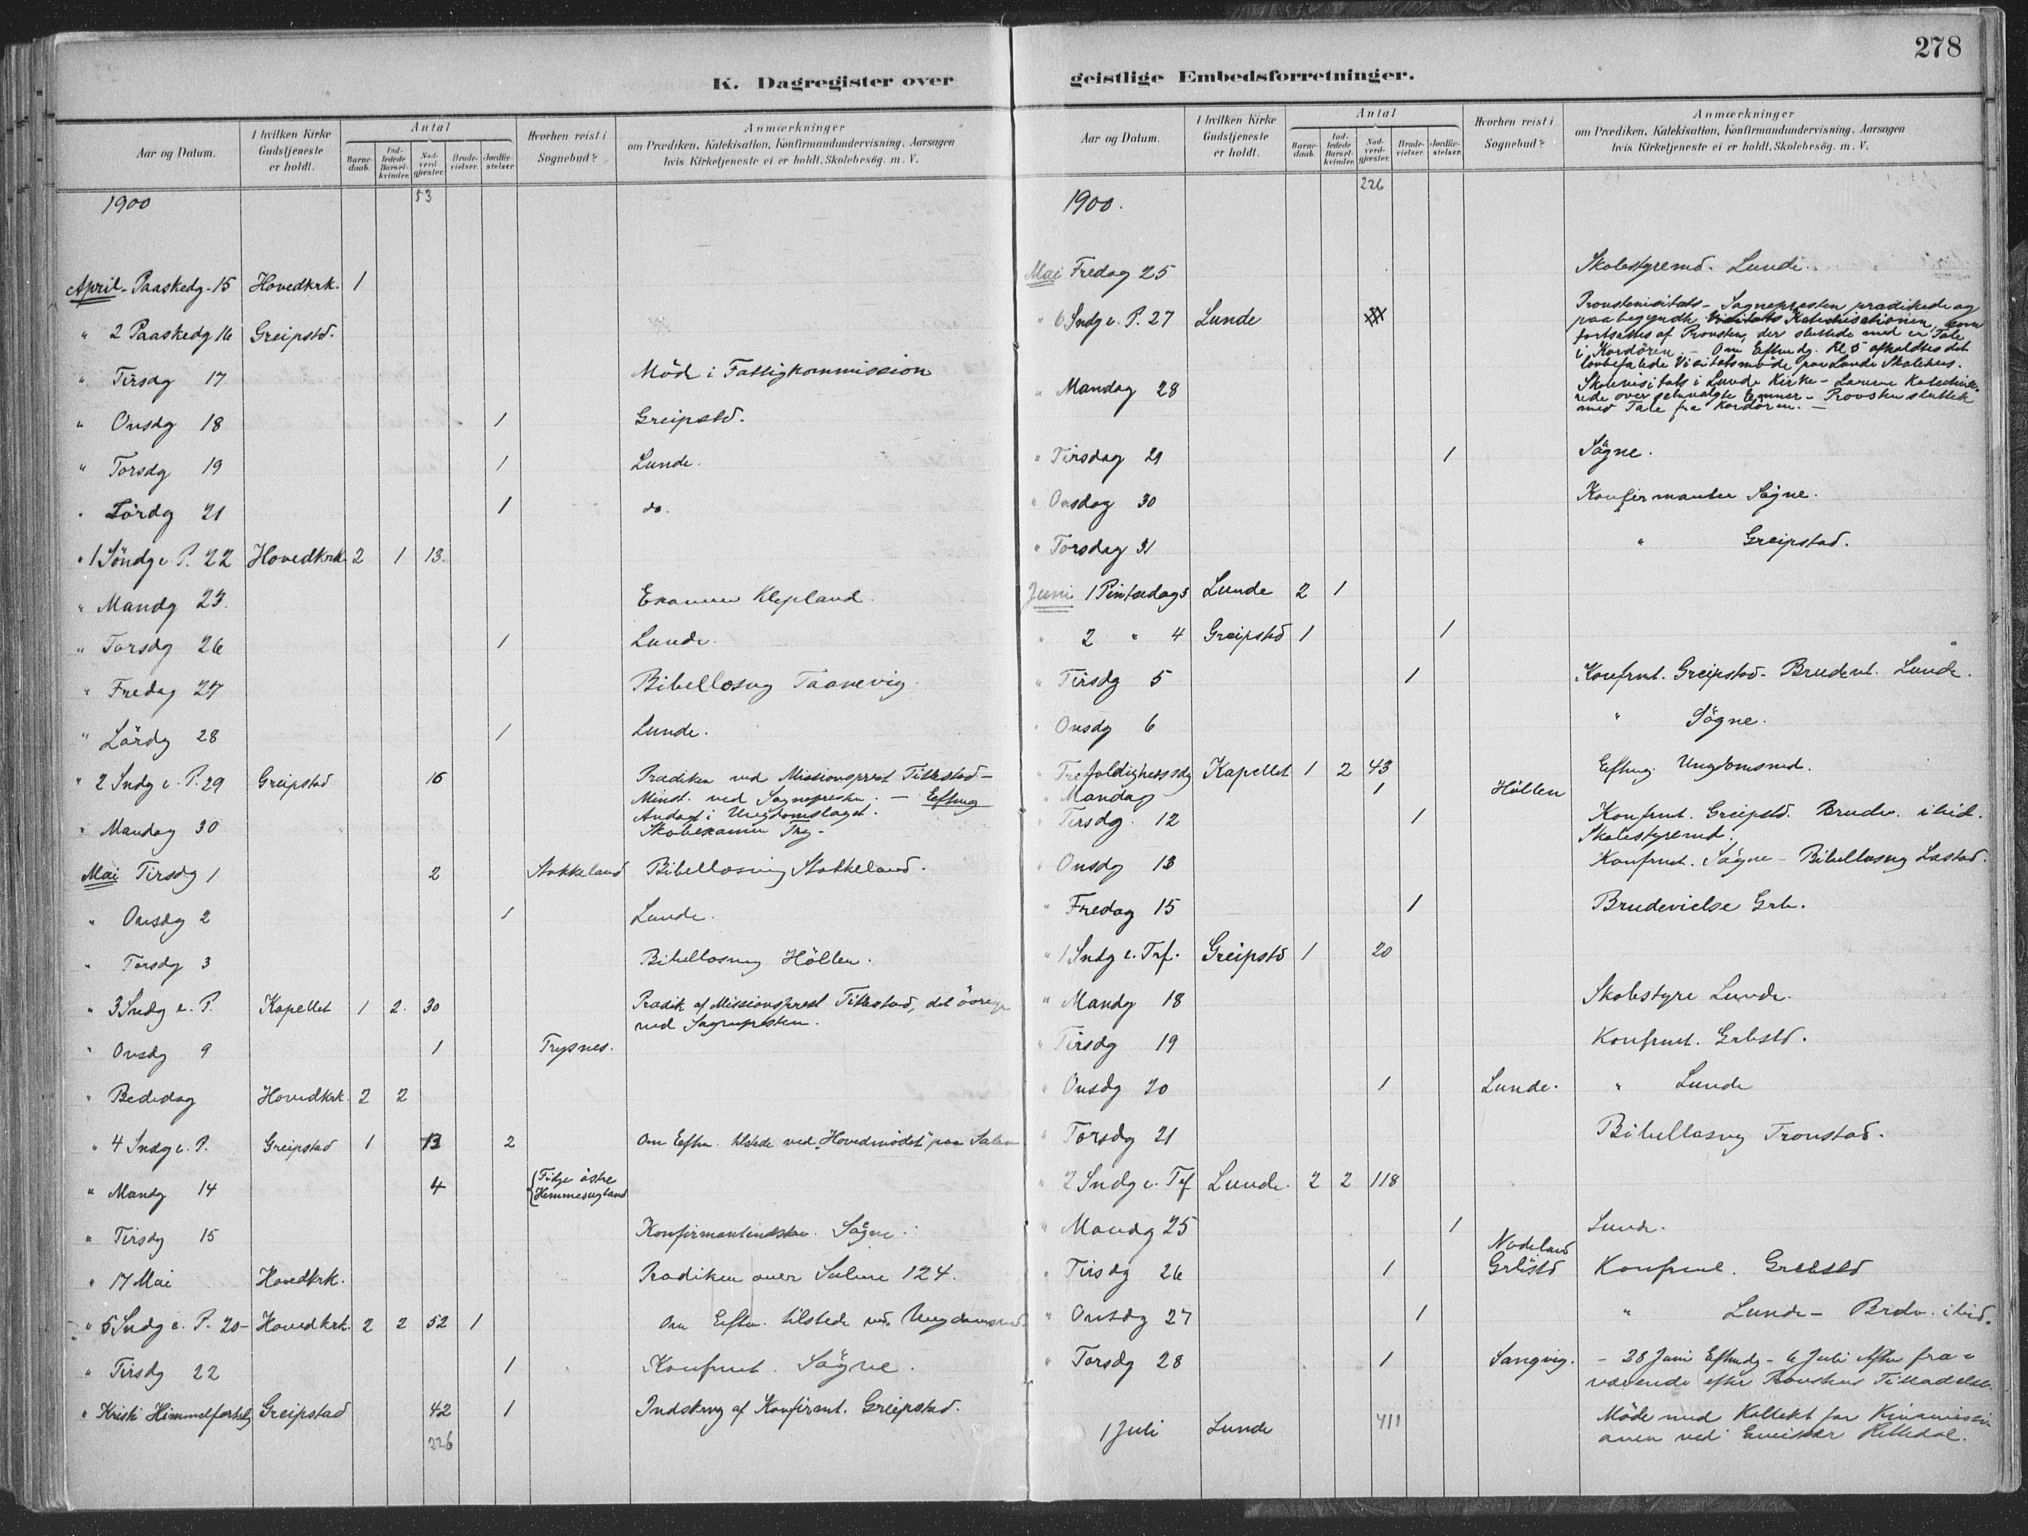 278
K. Dagregister over
geistlige Embedsforretninger.
Aar og Datum. I hvilken Kirke Gudstjeneste er holdt. Antal Barnedaab. Indledede Barselkvinder. Nadverdgjæster. Brudevielser. Jordfæstelser. Hvorhen reist i Sognebud? Anmærkninger om Prædiken, Katekisation, Konfirmandundervisning, Aarsagen hvis Kirketjeneste ei er holdt, Skolebesøg. m. V.
1900 53
April - Paaskedg. 15 Hovedkrk. 1
" 2 Paaskedg 16 Greipstd.
" Tirsdg 17 Möd i Fattigkommission
" Onsdg 18 1 Greipstd.
" Torsdg 19 1 Lunde.
" Lördg 21 1 do.
" 1 Söndg e. P. 22 Hovedkrk. 2 1 13.
" Mandg 23. Examen Klepland.
" Torsdg 26 1 Lunde.
" Fredag 27 Bibellæsng Taanevig.
" Lördg 28 1 Lunde.
" 2 Sndg e. P. 29 Greipstad 16 Prædiken ved Missionsprest Titlestad -
Minst. ved Sognepresten. - Eftmg
Andagt i Ungdomslaget.
" Mandag 30 Skolexamen Try.
Mai Tirsdg 1 2 Stokkeland Bibellæsning Stokkeland.
" Onsdg 2 1 Lunde.
" Torsdg 3 Bibellæsng Höllen.
" 3 Sndg e. P. Kapellet 1 2. 30 Prædik af Missionsprest Titlestad, det övrige
ved Sognepresten.
" Onsdg 9 1 Trysnes.
" Bededag Hovedkrk. 2 2
" 4 Sndg e. P. Greipstad 1 13 2 Om Eftm. tilstede ved "Hovedmödet" paa Salem
" Mandg 14 4 Tidge östre
Hemmesugland
" Tirsdg 15 Sögne.
" 17 Mai Hovedkrk. Prædiken over Salme 124.
" 5 Sndg e. P. 20 - Hovedkrk. 2 2 52 1 Om Eftm. tilstede ved Ungdomsmd.
" Tirsdg 22 1 Konfrmt. Sögne.
" Kristi Himmelfartsdg Greipstad 42 1 Indskrvg af Konfirmt. Greipstad.
226
Aar og Datum. I hvilken Kirke Gudstjeneste er holdt. Antal Barnedaab. Indledede Barselkvinder. Nadverdgjæster. Brudevielser. Jordfæstelser. Hvorhen reist i Sognebud? Anmærkninger om Prædiken, Katekisation, Konfirmandundervisning, Aarsagen hvis Kirketjeneste ei er holdt, Skolebesøg. m. V.
1900. 226
Mai Fredag 25 Skolestyremd. Lunde.
" 6 Sndg e. P. 27 Lunde Provstevisitats - Sognepresten prædikede og
paabegyndte Katechisationen, som
fortsattes af Provsten, der sluttede med en Tale
i Kordören. - Om Eftmdg. Kl 5 afholdtes det
lovbefalede Visitatsmöde paa Lunde Skolehus.
" Mandag 28 Skolevisitats i Lunde Kirke - Lærerne Katechise-
rede over selvvalgte Emner - Provsten sluttede
med Tale fra Kordören. -
" Tirsdag 29 1 Sögne.
" Onsdag 30 Konfirmanter Sögne.
" Torsdag 31 " Greipstad.
Juni 1 Pintsedag 3 Lunde 2 1
" 2 " 4 Greipstd 1 1
" Tirsdg 5 1 Konfrmt. Greipstad - Brudevt. Lunde.
" Onsdg 6 " Sögne.
" Trefoldighedssdg Kapellet 1 2 43 Eftmg. Ungdomsmd.
" Mandag 1 Höllen
" Tirsdg. 12 1 Konfrmt. Greipstd. Brudv. ibid.
Skolestyremd.
" Onsdg 13 Konfrmt. Sögne - Bibellæsng Lastad.
" Fredag 15 1 Brudevielse Grb.
" 1 Sndg e. Trf. Greipstd 1 20
" Mandg 18 Skolestyre Lunde.
" Tirsdg 19 Konfrmt. Grbstd.
" Onsdg 20 1 Lunde. " Lunde
" Torsdg 21 Bibellæsng Tronstad.
" 2 Sndg e. Trf Lunde. 2 2 118
" Mandg 25 1 Lunde.
" Tirsdg 26 1 Nodeland
Grbstd Konfrmt. Grebstd
" Onsdg 27 1 " Lunde - Brdv. ibid.
" Torsdg 28 1 Sangvig. - 28 Juni Eftmdg - 6 Juli Aften fra-
værende efter Provstens Tilladelse.
1 Juli Lunde 411 Möde med Kollekt for Kinamissi-
onen ved Emissær